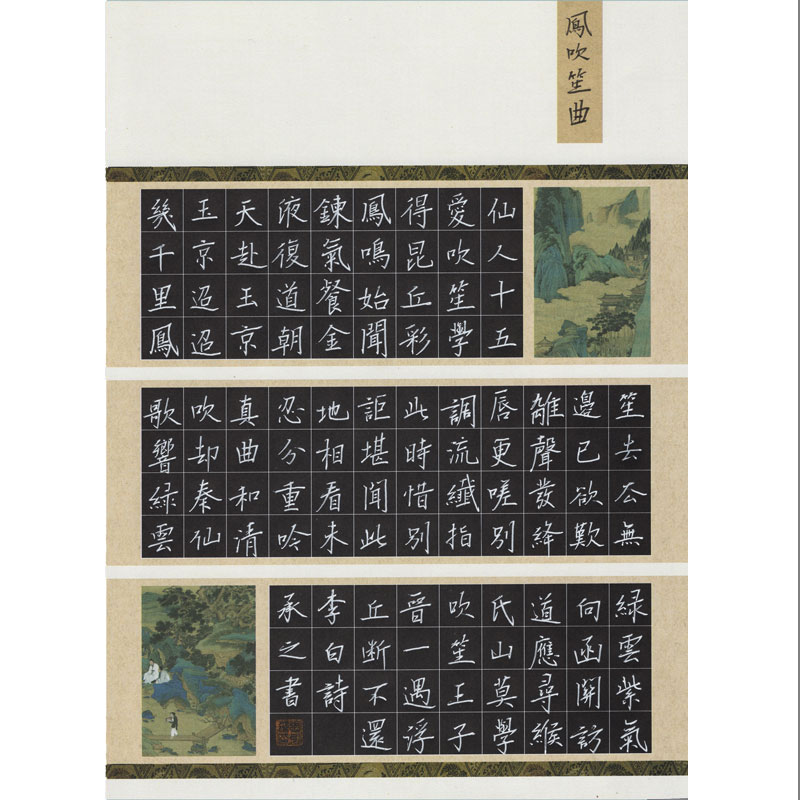 鳳吹笙曲
仙人十五
愛吹笙學
得昆丘彩
鳳鳴始聞
鍊氣餐金
液復道朝
天赴玉京
玉京迢迢
幾千里鳳
笙去厺無
邊已欲歎
離聲發絳
唇更嗟別
調流纖指
此時惜別
詎堪聞此
地相看未
忍分重吟
真曲和清
吹却奏仙
歌響綠雲
綠雲紫氣
向函關訪
道應尋緱
氏山莫學
吹笙王子
晉一遇浮
丘斷不還
李白詩
承之書